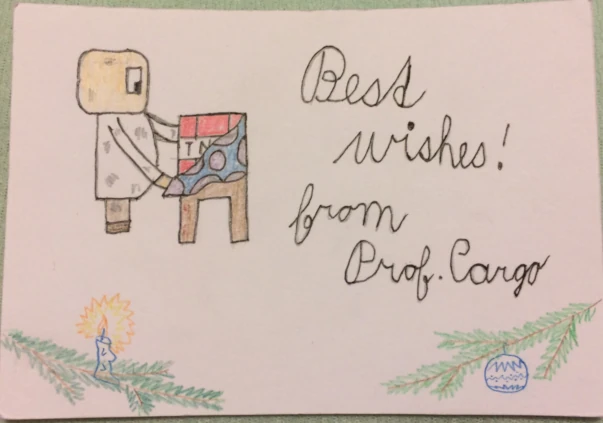 Best
wishes!
from
Prof. Cargo
TN